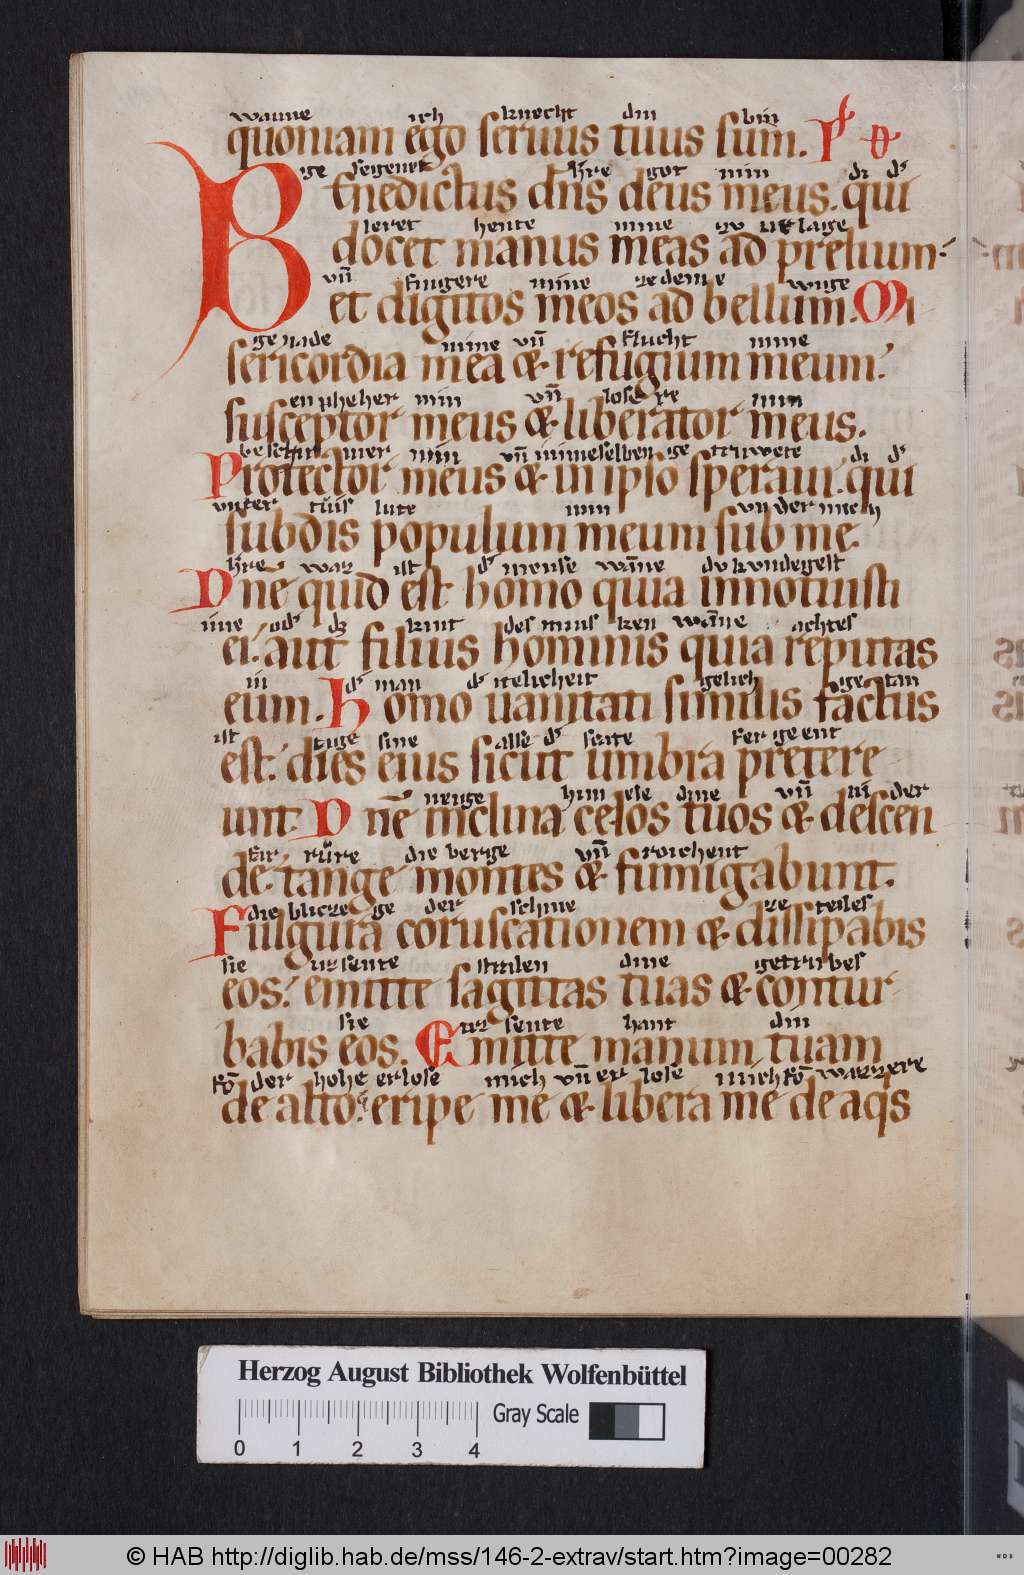 wanne ich knecht din bin
quoniam ego seruus tuus sum.
ge segenet h're got min di d'
Benedictus dn̄s deus meus. qui
leret hente mine zv urlage
docet manus meas ad prelium.
vn̄ fingere mine ze deme wige
et digitos meos ad bellum. Mi
genade mine vn̄ flucht mine
sericordia mea & refugium meum.
enpheher min vn̄ losere min
susceptor meus & liberator meus.
beschirmer min vn̄ inimeselben ge truwete di d'
Protector meus & in ipso speraui. qui
vnter lute min vnder mich
subdis populum meum sub me.
h're waz ist d' mense wāne du kundegest
Dn̄e quid est homo quia innotuisti
ime od' dz kint des mins ken wāne achtes
ei. aut filius hominis quia reputas
in d' man d' itelicheit gelich ge tan
eum. Homo uanitati similis factus
ist tage sine alse d' scate fergeent
est. dies eius sicut umbra pretere
neuge himele dine vn̄ ni der
unt. Dn̄e inclina celos tuos & descen
rure die berge vn̄ roichent
de. tange montes & fumigabunt.
die blicze ge der schine ze teiles
Fulgura coruscationem & dissipabis
sie uzsente stralen dine getrubes
eos. emitte sagittas tuas & contur
sie uz sente hant din
babis eos. Emitte manum tuam
fō der hohe erlose mich vn̄ er lose mich fō wazzere
de alto. eripe me & libera me de aq̄s
Herzog August Bibliothek Wolfenbüttel
Gray Scale
0 1 2 3 4
© HAB http://diglib.hab.de/mss/146-2-extrav/start.htm?image=00282